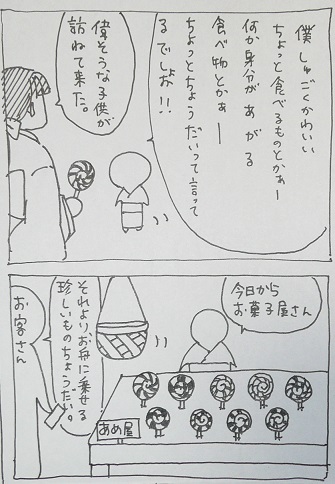 僕しゅごくかわいい
ちょっと食べるものとかぁー
何か身分があがる
食べ物とかぁー
ちょっとちょうだいって言って
るでしょお!!
偉そうな子供が
訪ねて来た。
今日から
お菓子屋さん
それよりお舟に乗せる
珍しいものちょうだい。
お客さん
あめ屋